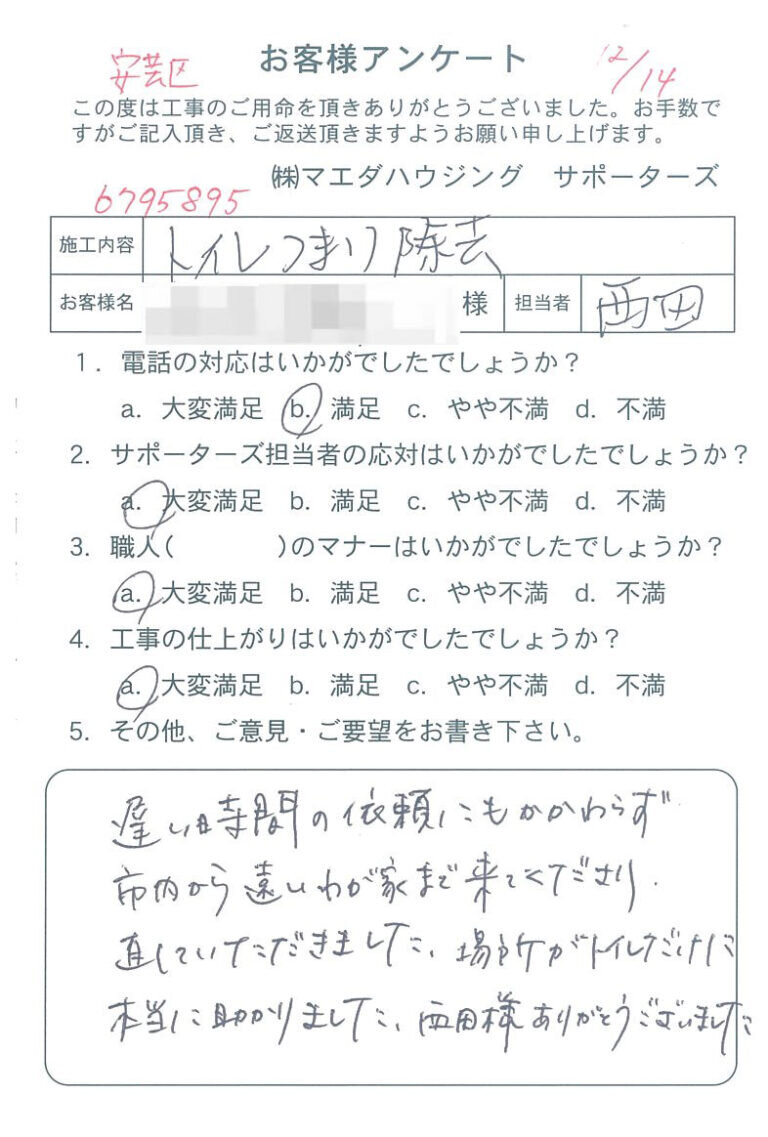 安芸区
お客様アンケート
12/14
この度は工事のご用命を頂きありがとうございました。お手数で
すがご記入頂き、ご返送頂きますようお願い申し上げます。
㈱マエダハウジング サポーターズ
6795895
施工内容 トイレつまり除去
お客様名 様 担当者 西田
1. 電話の対応はいかがでしたでしょうか？
a. 大変満足 b. 満足 c. やや不満 d. 不満
2. サポーターズ担当者の応対はいかがでしたでしょうか？
a. 大変満足 b. 満足 c. やや不満 d. 不満
3. 職人( )のマナーはいかがでしたでしょうか？
a. 大変満足 b. 満足 c. やや不満 d. 不満
4. 工事の仕上がりはいかがでしたでしょうか？
a. 大変満足 b. 満足 c. やや不満 d. 不満
5. その他、ご意見・ご要望をお書き下さい。
遅い時間の依頼にもかかわらず
市内から遠いわが家まで来てくださり、
直していただきました、場所がトイレだけに
本当に助かりました、西田様ありがとうございました